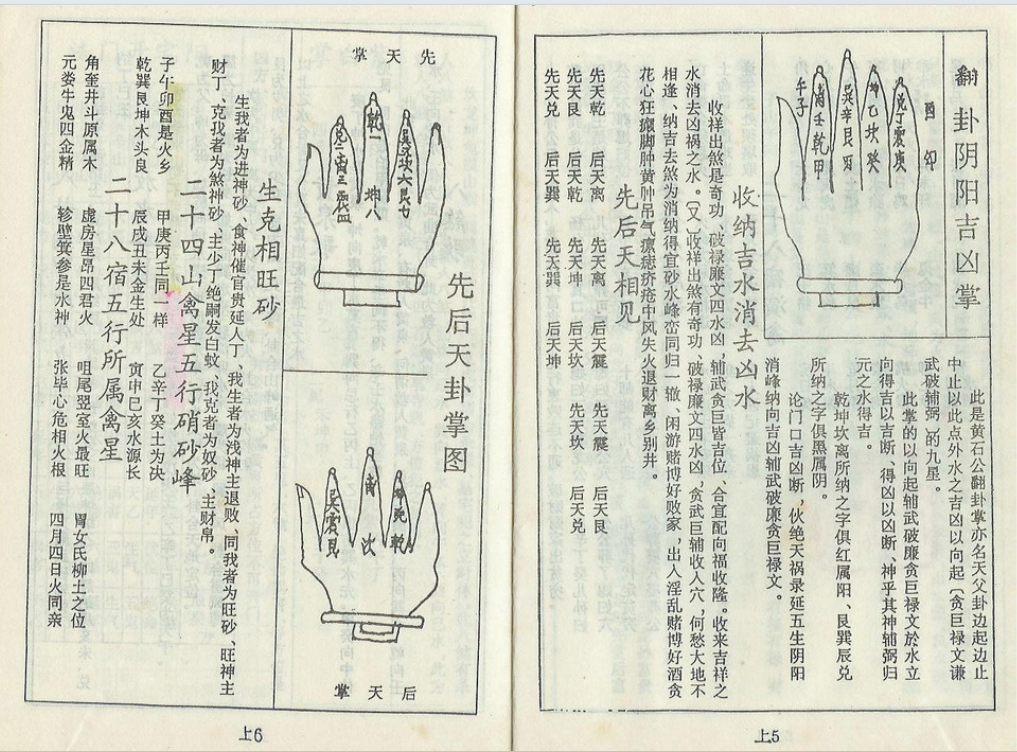 翻卦阴阳吉凶掌
酉 卯
兑丁震庚
坤乙坎癸
巽辛艮丙
离壬乾甲
午子
此是黄石公翻卦掌亦名天父卦边起边止
中止以此点外水之吉凶以向起〔贪巨禄文谦
武破辅弼〕的九星。
此掌的以向起辅武破廉贪巨禄文於水立
向得吉以吉断、得凶以凶断、神乎其神辅弼归
元之水得吉。
乾坤坎离所纳之字俱红属阳、艮巽辰兑
所纳之字俱黑属阴。
论门口吉凶断，伙绝天祸录延五生阴阳
消峰纳向吉凶辅武破廉贪巨禄文。
收纳吉水消去凶水
收祥出煞是奇功、破禄廉文四水凶，辅武贪巨皆吉位、合宜配向福收隆。收来吉祥之
水消去凶祸之水。〔又〕收祥出煞有奇功、破禄廉文四水凶，贪武巨辅收入穴，何愁大地不
相逢、纳吉去煞为消纳得宜砂水峰峦同归一辙、闲游赌博好败家，出人淫乱赌博好酒贪
花心狂癫脚肿黄肿吊气瘭痣疥疮中风失火退财离乡别井。
先后天相见
先天乾 后天离 先天离 后天震 先天震 后天艮
先天艮 后天乾 先天坤 后天坎 先天坎 后天兑
先天兑 后天巽 先天巽 后天坤
上5
先后天卦掌图
先天掌
乾一
兑二离三震四
巽五坎六艮七
坤八
后天掌
巽震艮
离
坎
坤兑乾
生克相旺砂
生我者为进神砂、食神催官贵延人丁、我生者为浅神主退败、同我者为旺砂、旺神主
财丁、克我者为煞神砂、主少丁绝嗣发白蚊、我克者为奴砂、主财帛。
二十四山禽星五行硝砂峰
子午卯酉是火乡 甲庚丙壬同一样 乙辛丁癸土为决
乾巽艮坤木头良 辰戌丑未金生处 寅申巳亥水源长
二十八宿五行所属禽星
角奎井斗原属木 虚房星昂四君火 咀尾翌室火最旺 胃女氏柳土之位
元娄牛鬼四金精 轸壁箕参是水神 张毕心危相火根 四月四日火同亲
上6